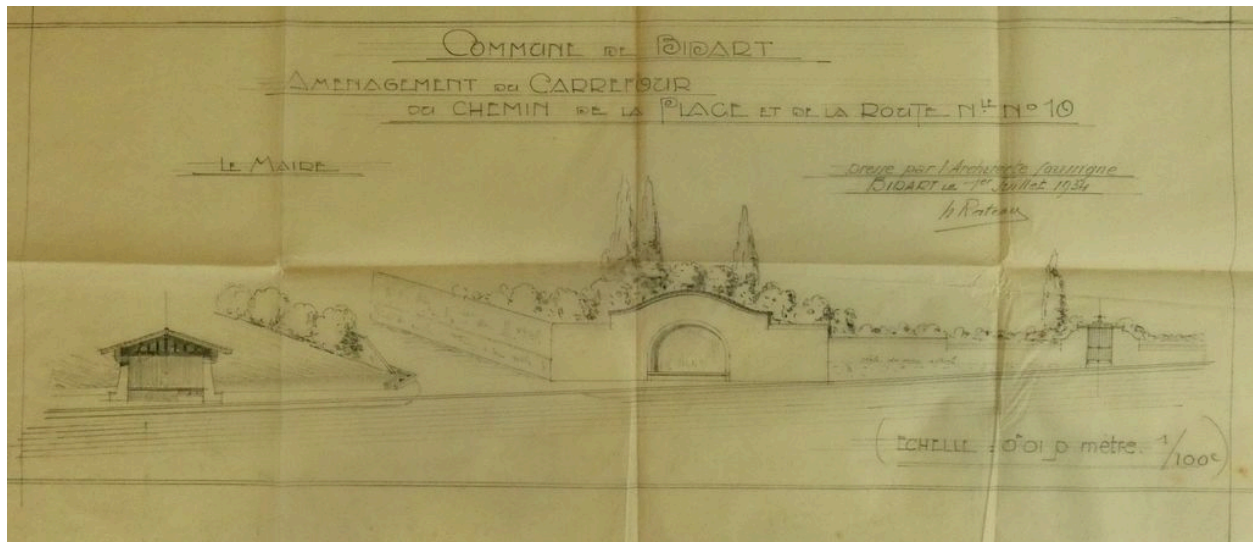 COMMUNE DE BIDART
AMENAGEMENT DU CARREFOUR
DU CHEMIN DE LA PLAGE ET DE LA ROUTE NLE No 10
LE MAIRE
Dressé par l'Architecte soussigné
BIDART LE 1er Juillet 1934
(ECHELLE : 0m01 p mètre. 1/100e)